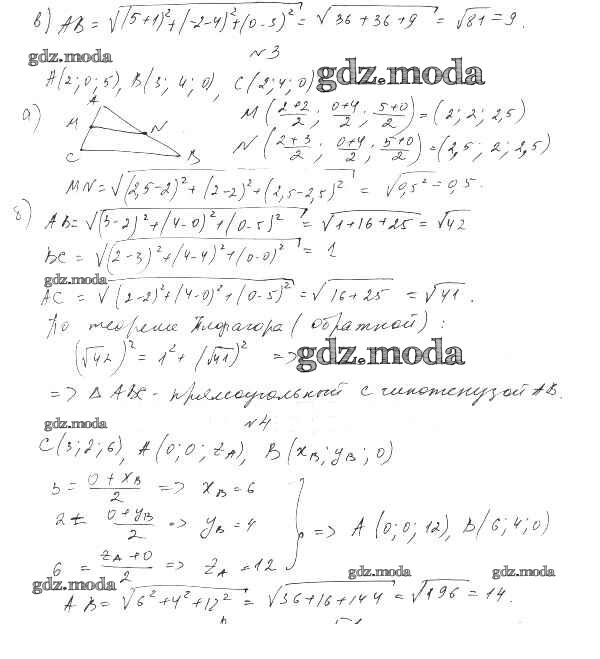 в) AB = √((5+1)²+(-2-4)²+(0-3)²) = √(36+36+9) = √81 = 9.
gdz.moda
№3
A(2; 0; 5), B(3; 4; 0), C(2; 4; 0)
gdz.moda
а) A M N C B
M((2+2)/2; (0+4)/2; (5+0)/2) = (2; 2; 2,5)
N((2+3)/2; (0+4)/2; (5+0)/2) = (2,5; 2; 2,5)
MN = √((2,5-2)²+(2-2)²+(2,5-2,5)²) = √0,5² = 0,5.
б) AB = √((3-2)²+(4-0)²+(0-5)²) = √(1+16+25) = √42
BC = √((2-3)²+(4-4)²+(0-0)²) = 1
gdz.moda
AC = √((2-2)²+(4-0)²+(0-5)²) = √(16+25) = √41.
По теореме Пифагора (обратной):
(√42)² = 1² + (√41)² =>
gdz.moda
=> △ABC - прямоугольный с гипотенузой AB.
gdz.moda
№4
C(3; 2; 6), A(0; 0; z_A), B(x_B; y_B; 0)
3 = (0+x_B)/2 => x_B = 6
2 = (0+y_B)/2 => y_B = 4
=> A(0; 0; 12), B(6; 4; 0)
6 = (z_A+0)/2 => z_A = 12
gdz.moda gdz.moda gdz.moda
AB = √(6²+4²+12²) = √(36+16+144) = √196 = 14.